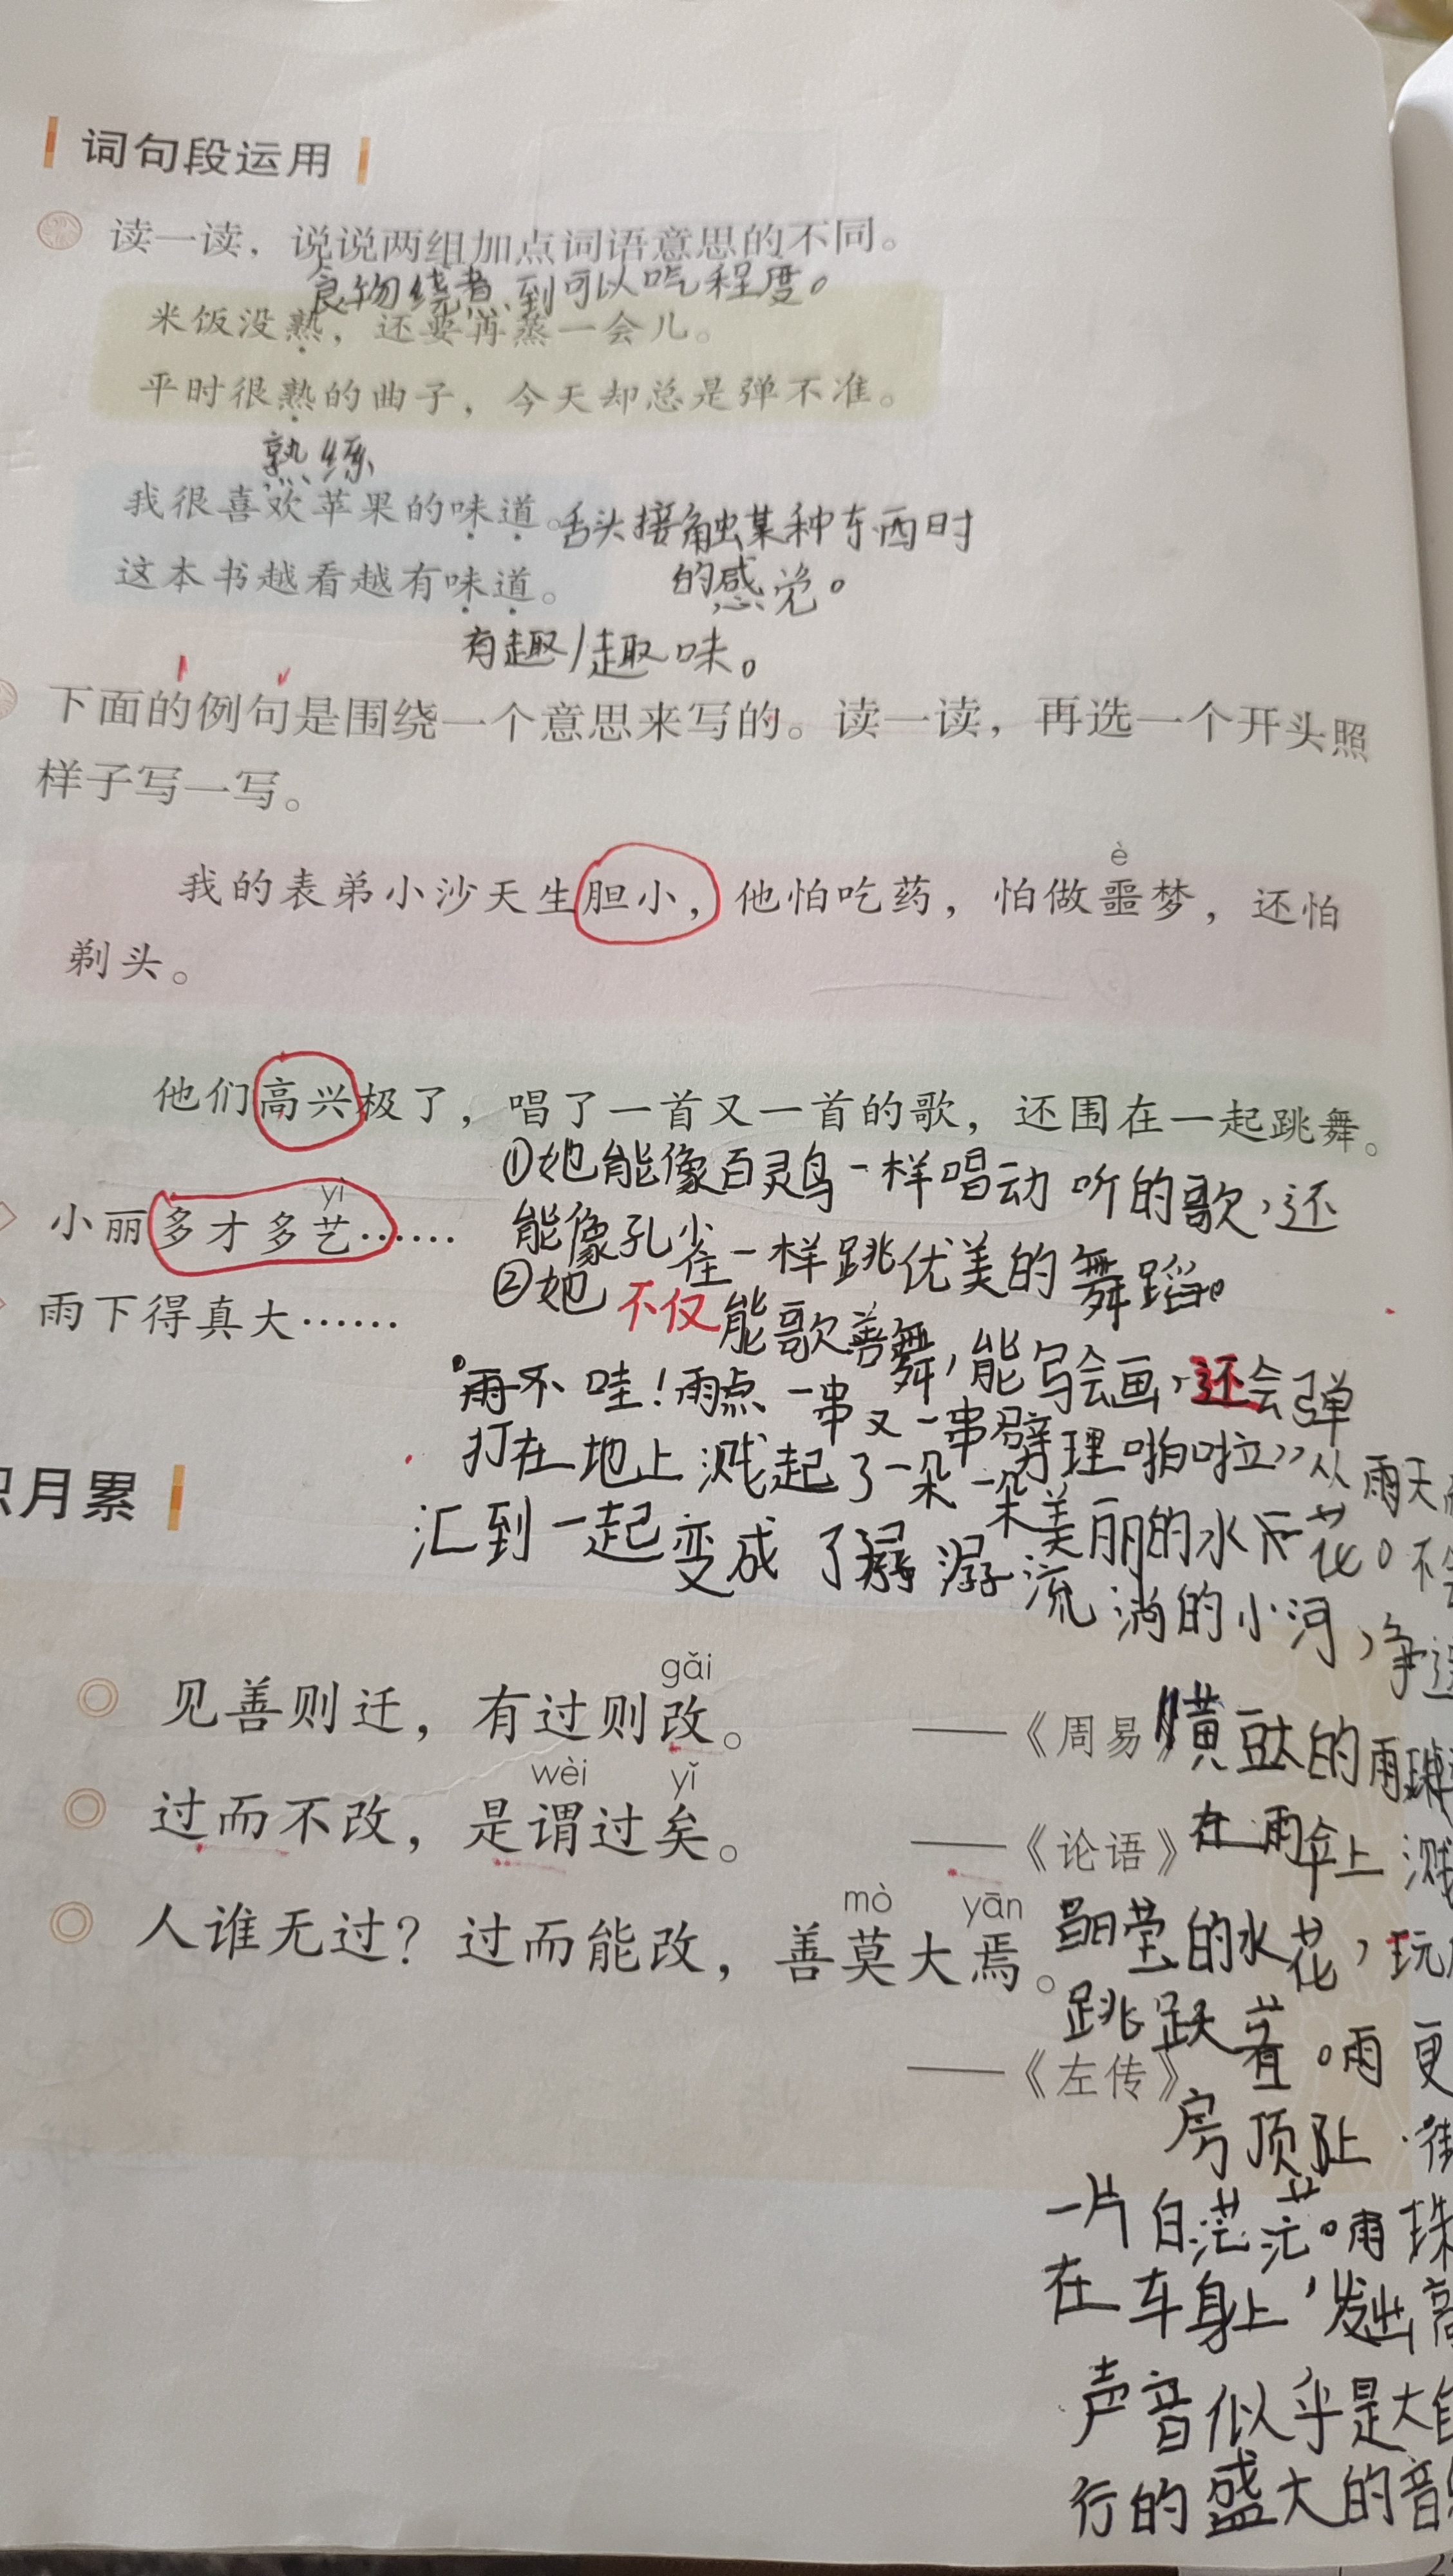 词句段运用
读一读，说说两组加点词语意思的不同。
食物烧煮到可以吃程度。
米饭没熟，还要再蒸一会儿。
平时很熟的曲子，今天却总是弹不准。
熟练
我很喜欢苹果的味道。舌头接触某种东西时
的感觉。
这本书越看越有味道。
有趣/趣味。
下面的例句是围绕一个意思来写的。读一读，再选一个开头照
样子写一写。
è
我的表弟小沙天生胆小，他怕吃药，怕做噩梦，还怕
剃头。
他们高兴极了，唱了一首又一首的歌，还围在一起跳舞。
①她能像百灵鸟一样唱动听的歌，还
能像孔雀一样跳优美的舞蹈。
yì
小丽多才多艺……
②她不仅能歌善舞，能写会画，还会弹
雨下得真大……
雨点一串又一串劈理啪啦
打在地上溅起了一朵一朵美丽的水花。不
从雨天
汇到一起变成了潺潺流淌的小河，争
积月累
gǎi
见善则迁，有过则改。
——《周易》
黄豆大的雨珠
wèi yǐ
过而不改，是谓过矣。
——《论语》
在雨伞上溅
mò yān
人谁无过？过而能改，善莫大焉。
晶莹的水花，玩
跳跃着。雨更
——《左传》
房顶上，街
一片白茫茫。雨珠
在车身上，发出高
声音似乎是大自
行的盛大的音